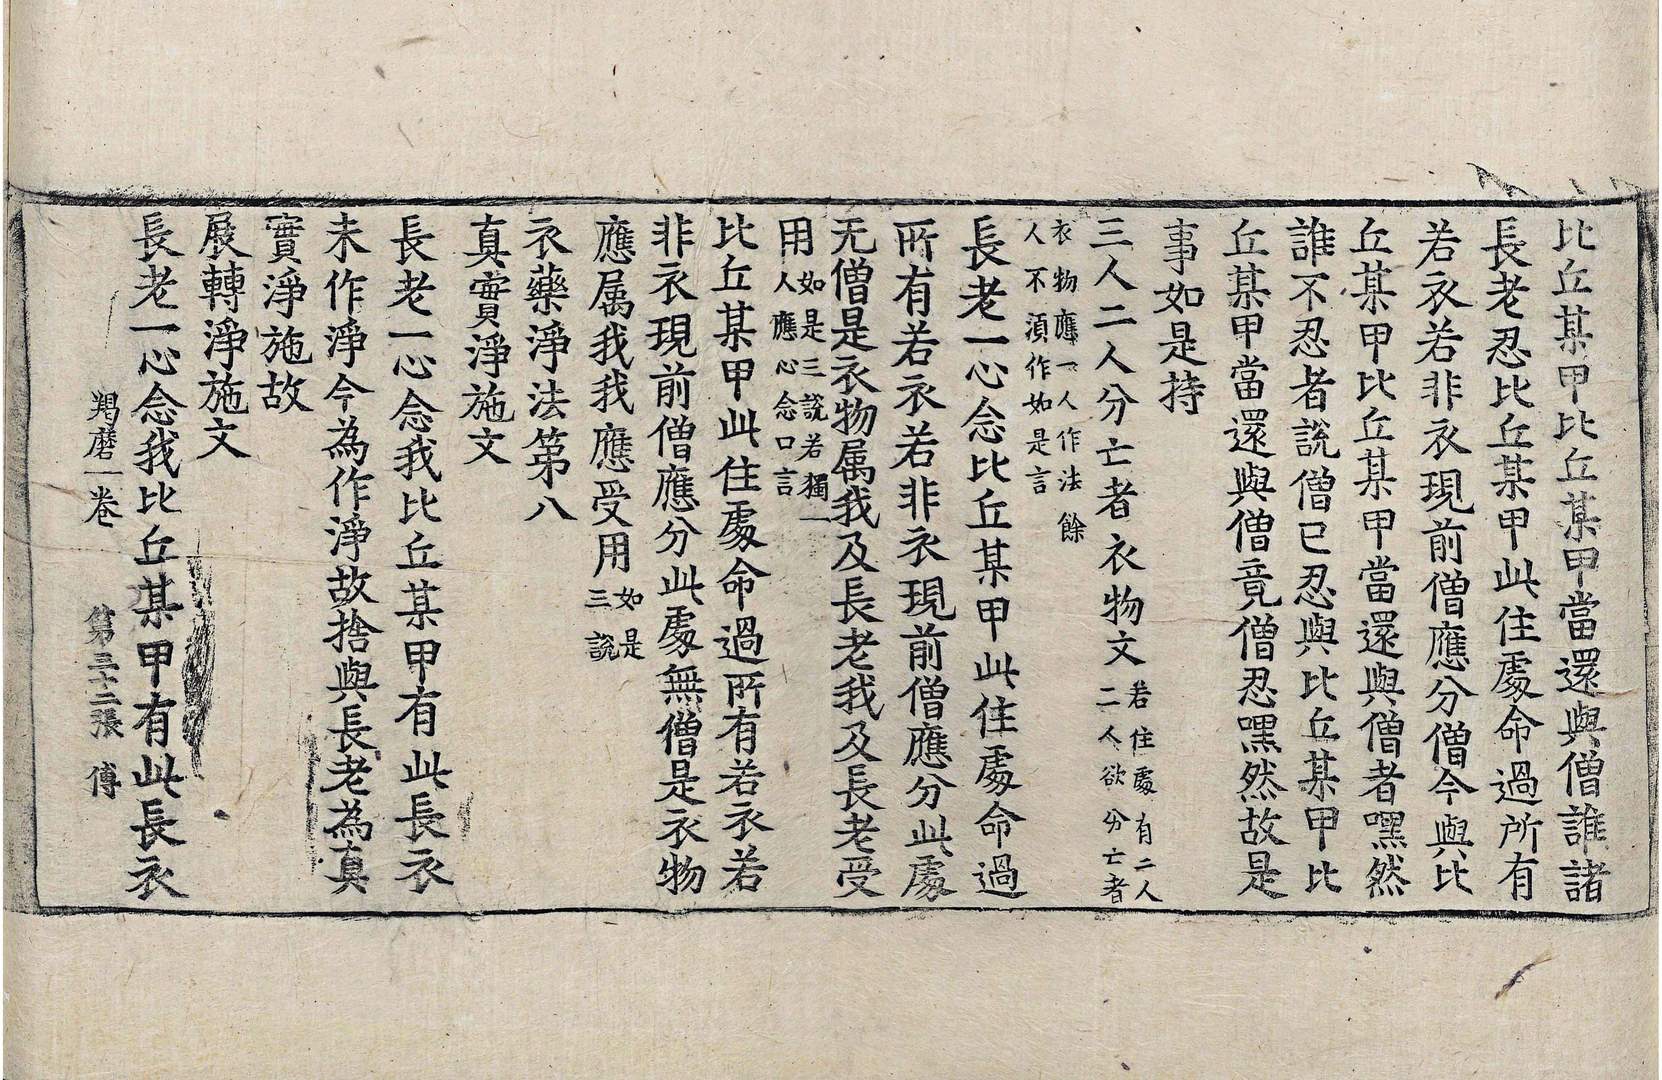 比丘某甲比丘某甲當還與僧誰諸
長老忍比丘某甲此住處命過所有
若衣若非衣現前僧應分僧今與比
丘某甲比丘某甲當還與僧者嘿然
誰不忍者說僧已忍與比丘某甲比
丘某甲當還與僧竟僧忍嘿然故是
事如是持
三人二人分亡者衣物文若住處有二人二人欲分亡者
衣物應一人作法餘人不湏作如是言
長老一心念比丘某甲此住處命過
所有若衣若非衣現前僧應分此處
无僧是衣物属我及長老我及長老受
用如是三說若獨一人應心念口言
比丘某甲此住處命過所有若衣若
非衣現前僧應分此處無僧是衣物
應属我我應受用如是三說
衣藥淨法第八
真實淨施文
長老一心念我比丘某甲有此長衣
未作淨今為作淨故捨與長老為真
實淨施故
展轉淨施文
長老一心念我比丘某甲有此長衣
羯磨一卷 第三十二張 傅